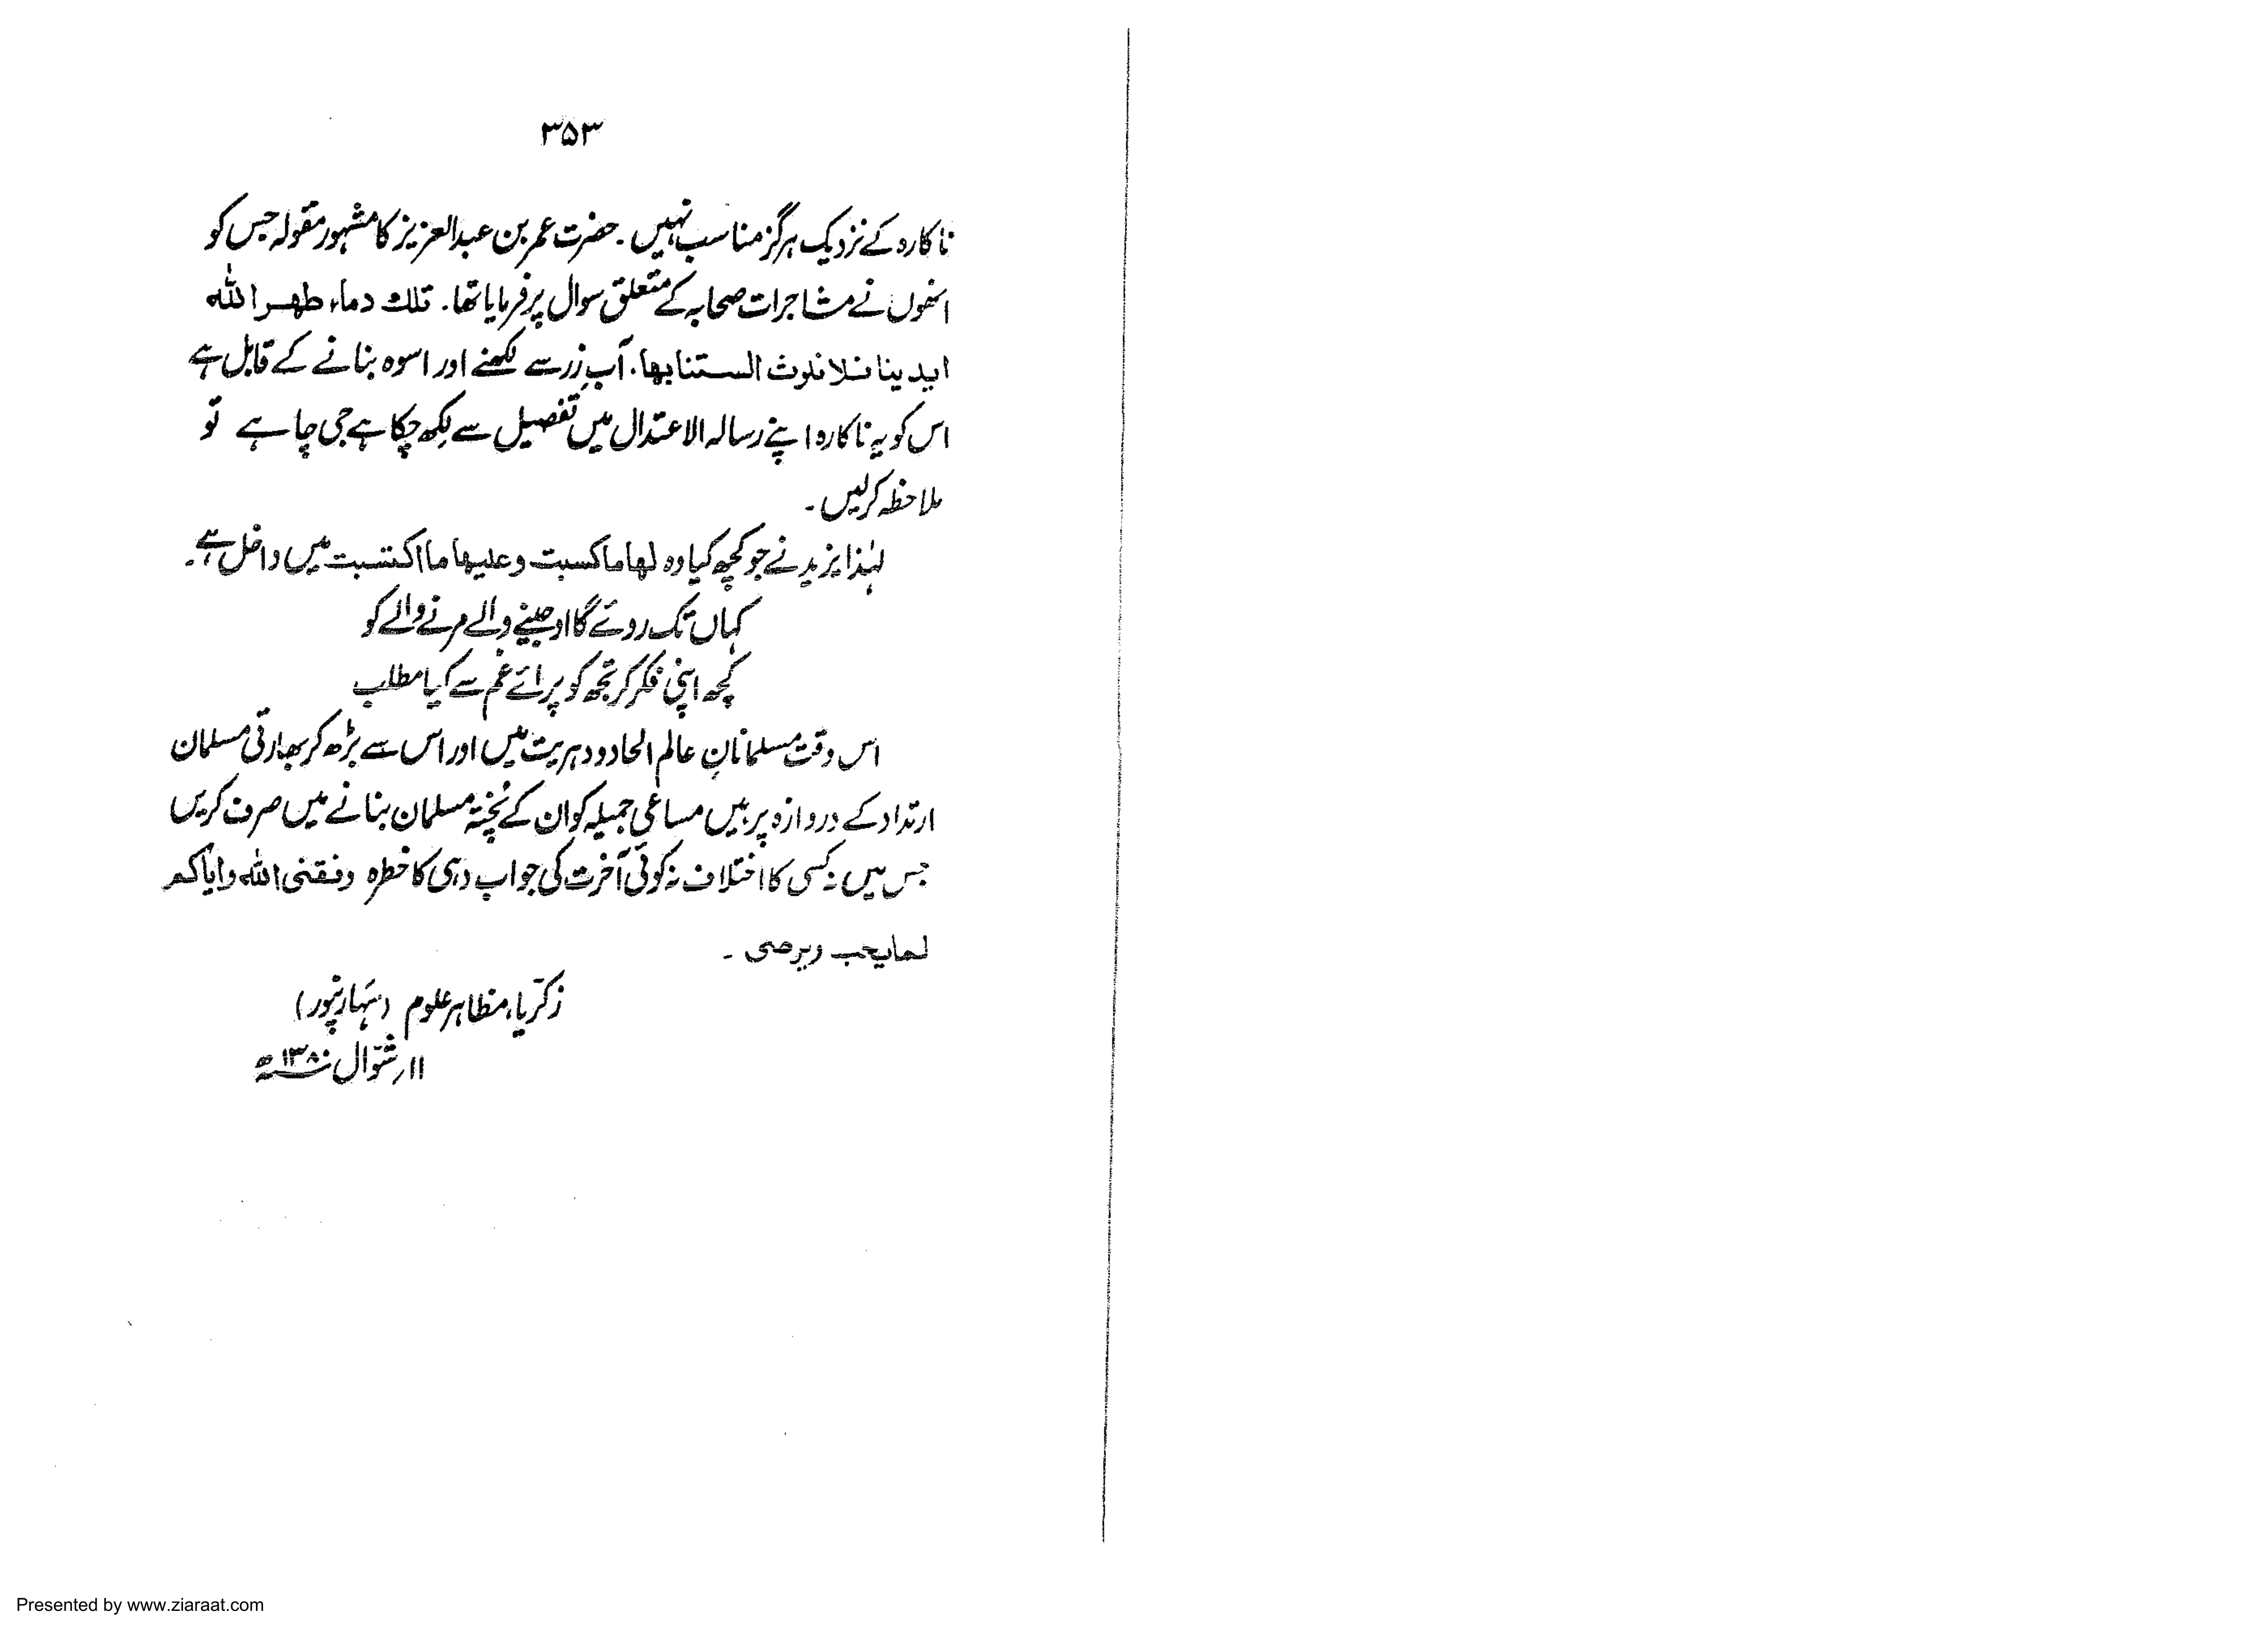 ۳۵۳
ناکارہ کے نزدیک ہرگز مناسب نہیں۔ حضرت عمر بن عبدالعزیز کا مشہور مقولہ جس کو
انھوں نے مشاجرات صحابہ کے متعلق سوال پر فرمایا تھا۔ تلک دماء طھر اللہ
ایدینا فلا نلوث السنتنا بھا۔ آبِ زر سے لکھنے اور اسوہ بنانے کے قابل ہے
اس کو یہ ناکارہ اپنے رسالہ الاعتدال میں تفصیل سے لکھ چکا ہے جی چاہے تو
ملاحظہ کرلیں۔
لہٰذا یزید نے جو کچھ کیا وہ لھا ما کسبت و علیھا ما اکتسبت میں داخل ہے۔
کہاں تک روئے گا او جینے والے مرنے والے کو
کچھ اپنی فکر کر تجھ کو پرائے غم سے کیا مطلب
اس وقت مسلمانانِ عالم الحاد و دہریت میں اور اس سے بڑھ کر بھارتی مسلمان
ارتداد کے دروازہ پر ہیں مساعی جمیلہ کو ان کے پختہ مسلمان بنانے میں صرف کریں
جس میں نہ کسی کا اختلاف نہ کوئی آخرت کی جواب دہی کا خطرہ وفقنی اللہ وایاکم
لما یحب ویرضی۔
زکریا، مظاہر علوم (سہارنپور)
۱۱؍ شوال ۱۳۸۰ھ
Presented by www.ziaraat.com